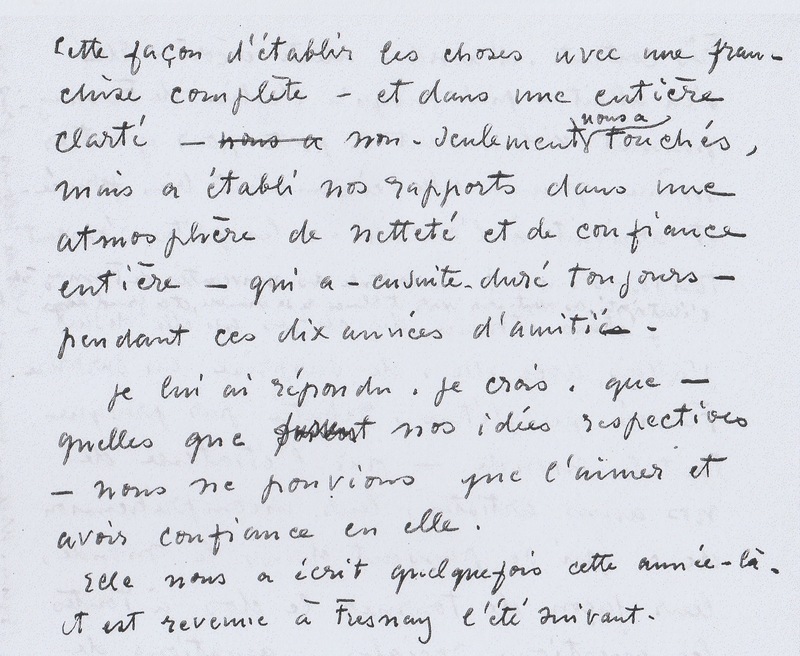 Cette façon d'établir les choses avec une fran-
chise complète - et dans une entière
clarté - nous a non-seulement nous a touchés,
mais a établi nos rapports dans une
atmosphère de netteté et de confiance
entière - qui a - ensuite - duré toujours -
pendant ces dix années d'amitié -
Je lui ai répondu, je crois, que -
quelles que fussent nos idées respectives
- nous ne pouvions que l'aimer et
avoir confiance en elle.
Elle nous a écrit quelquefois cette année-là.
et est revenue à Fresnay l'été suivant.